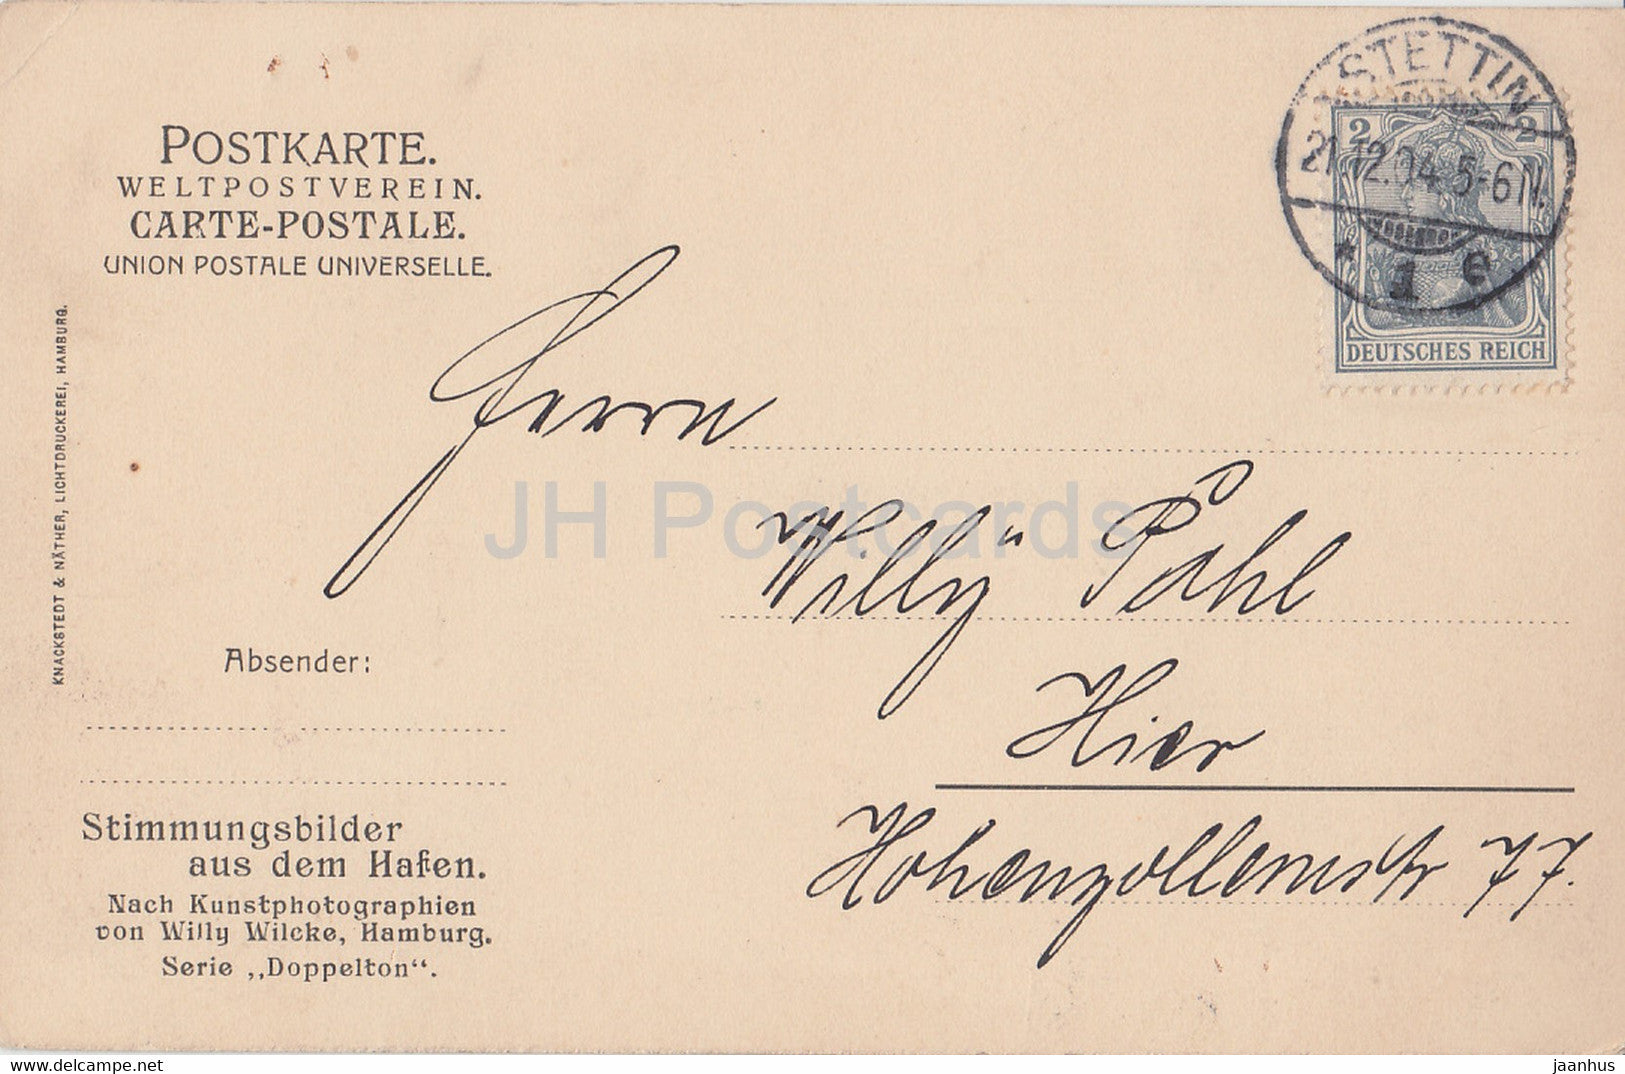 POSTKARTE.
WELTPOSTVEREIN.
CARTE-POSTALE.
UNION POSTALE UNIVERSELLE.
STETTIN
21.12.04.5-6N.
* 1 e
2 2
DEUTSCHES REICH
KNACKSTEDT & NÄTHER, LICHTDRUCKEREI, HAMBURG.
Herrn
JH Postcards
Willy Pahl
Absender:
Hier
Hohenzollernstr 77.
Stimmungsbilder
aus dem Hafen.
Nach Kunstphotographien
von Willy Wilcke, Hamburg.
Serie „Doppelton“.
hippostcard.com
jaanhus